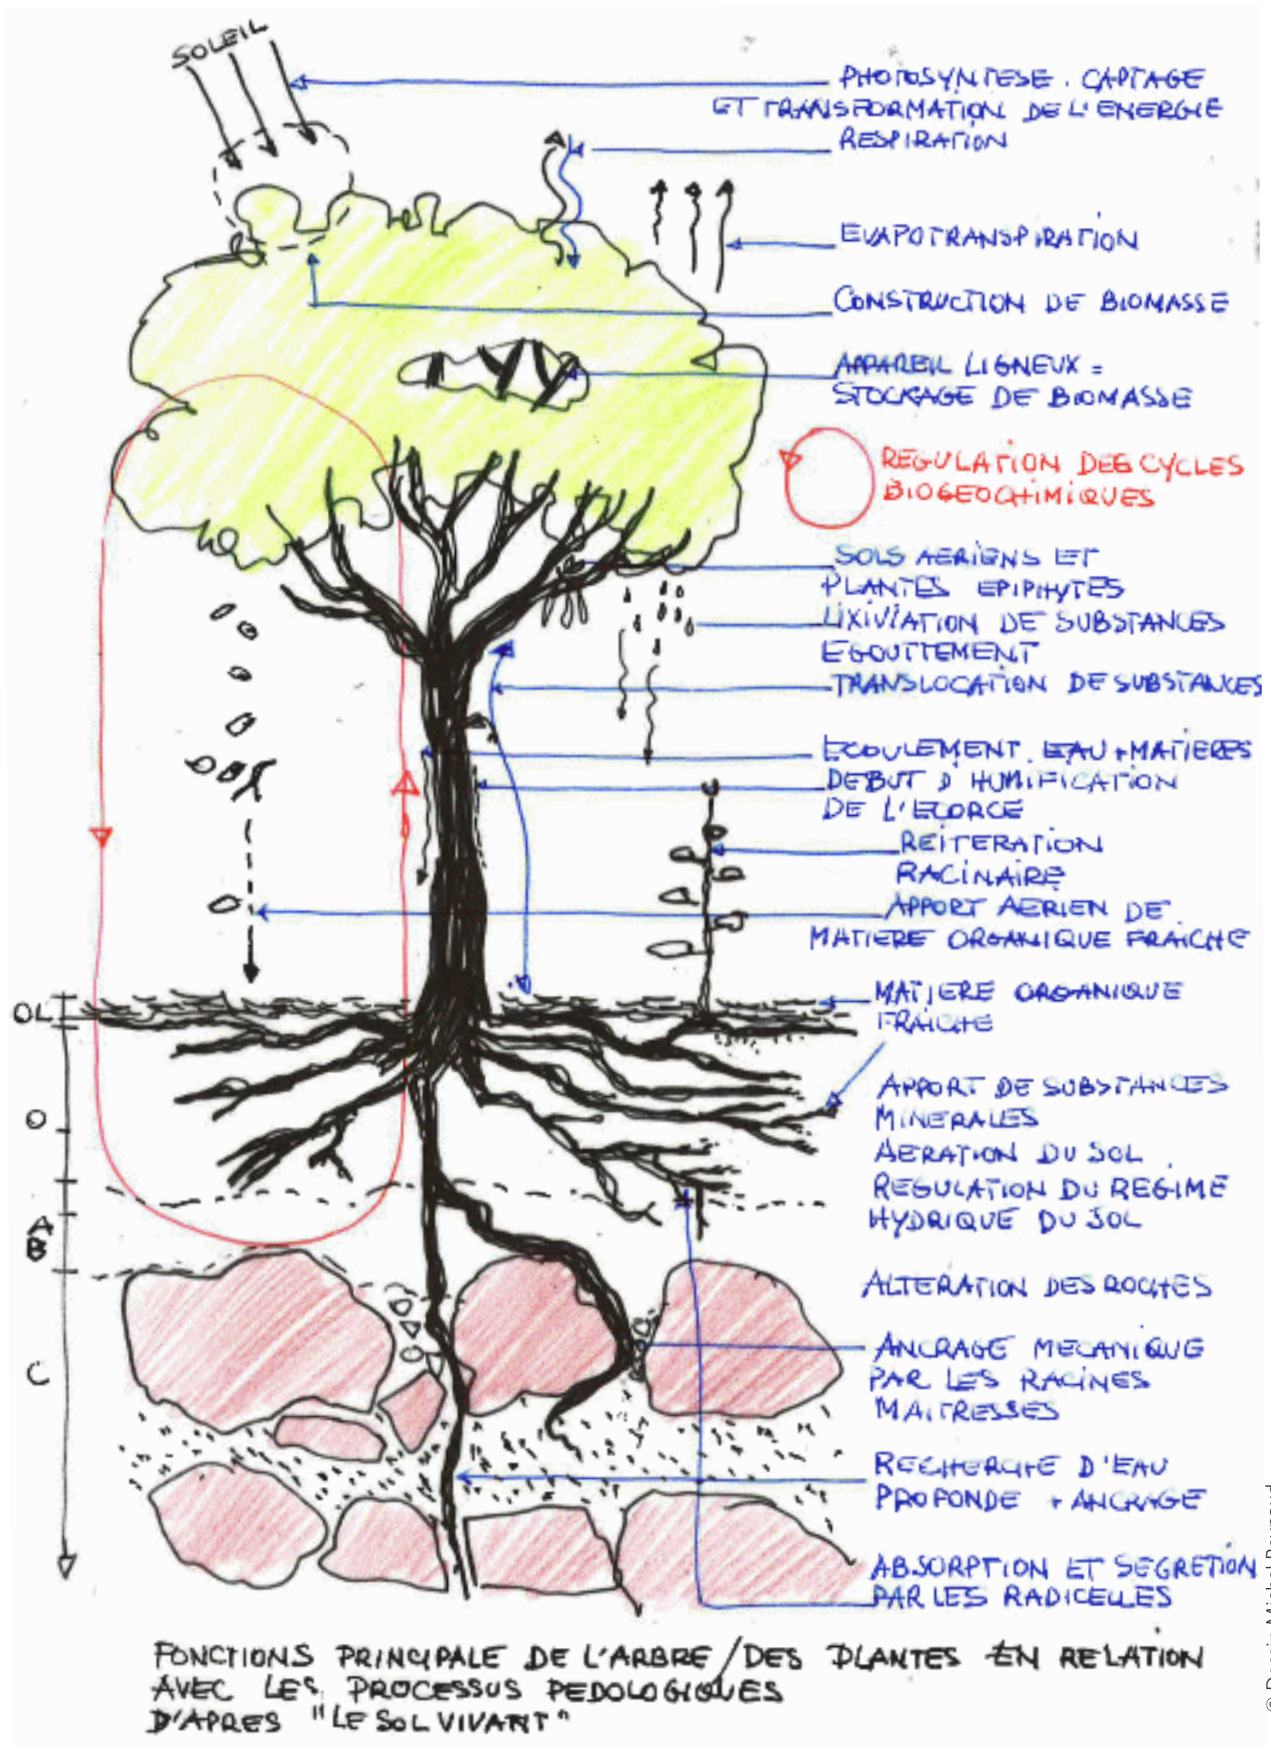 SOLEIL
PHOTOSYNTESE. CAPTAGE
ET TRANSFORMATION DE L'ENERGIE
RESPIRATION
EVAPOTRANSPIRATION
CONSTRUCTION DE BIOMASSE
APPAREIL LIGNEUX =
STOCKAGE DE BIOMASSE
REGULATION DES CYCLES
BIOGEOCHIMIQUES
SOLS AERIENS ET
PLANTES EPIPHYTES
LIXIVIATION DE SUBSTANCES
EGOUTTEMENT
TRANSLOCATION DE SUBSTANCES
ECOULEMENT. EAU + MATIERES
DEBUT D'HUMIFICATION
DE L'ECORCE
REITERATION
RACINAIRE
APPORT AERIEN DE
MATIERE ORGANIQUE FRAICHE
OL
MATIERE ORGANIQUE
FRAICHE
O
APPORT DE SUBSTANCES
MINERALES
AERATION DU SOL
REGULATION DU REGIME
HYDRIQUE DU SOL
A
B
ALTERATION DES ROCHES
C
ANCRAGE MECANIQUE
PAR LES RACINES
MAITRESSES
RECHERCHE D'EAU
PROFONDE + ANCRAGE
ABSORPTION ET SECRETION
PAR LES RADICELLES
FONCTIONS PRINCIPALE DE L'ARBRE / DES PLANTES EN RELATION
AVEC LES PROCESSUS PEDOLOGIQUES
D'APRES "LE SOL VIVANT"